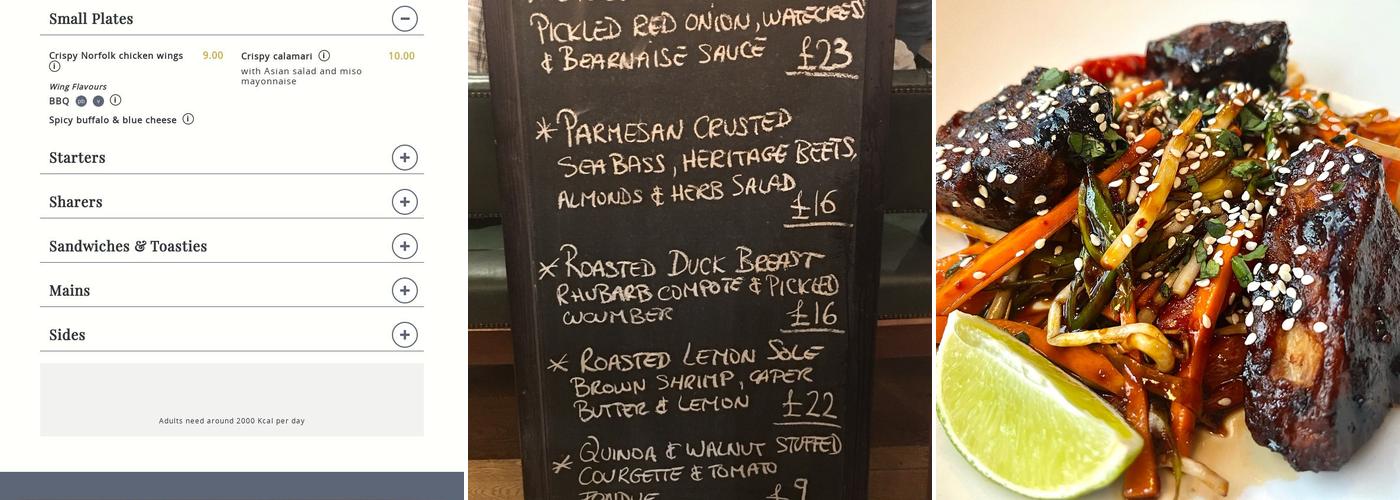 Small Plates
Crispy Norfolk chicken wings 9.00
Wing Flavours
BBQ
Spicy buffalo & blue cheese
Crispy calamari 10.00
with Asian salad and miso
mayonnaise
Starters
Sharers
Sandwiches & Toasties
Mains
Sides
Adults need around 2000 Kcal per day
PICKLED RED ONION, WATERCRESS
& BEARNAISE SAUCE £23
* PARMESAN CRUSTED
SEA BASS, HERITAGE BEETS,
ALMONDS & HERB SALAD
£16
* ROASTED DUCK BREAST
RHUBARB COMPOTE & PICKLED
CUCUMBER £16
* ROASTED LEMON SOLE
BROWN SHRIMP, CAPER
BUTTER & LEMON £22
* QUINOA & WALNUT STUFFED
COURGETTE & TOMATO
FONDUE £9